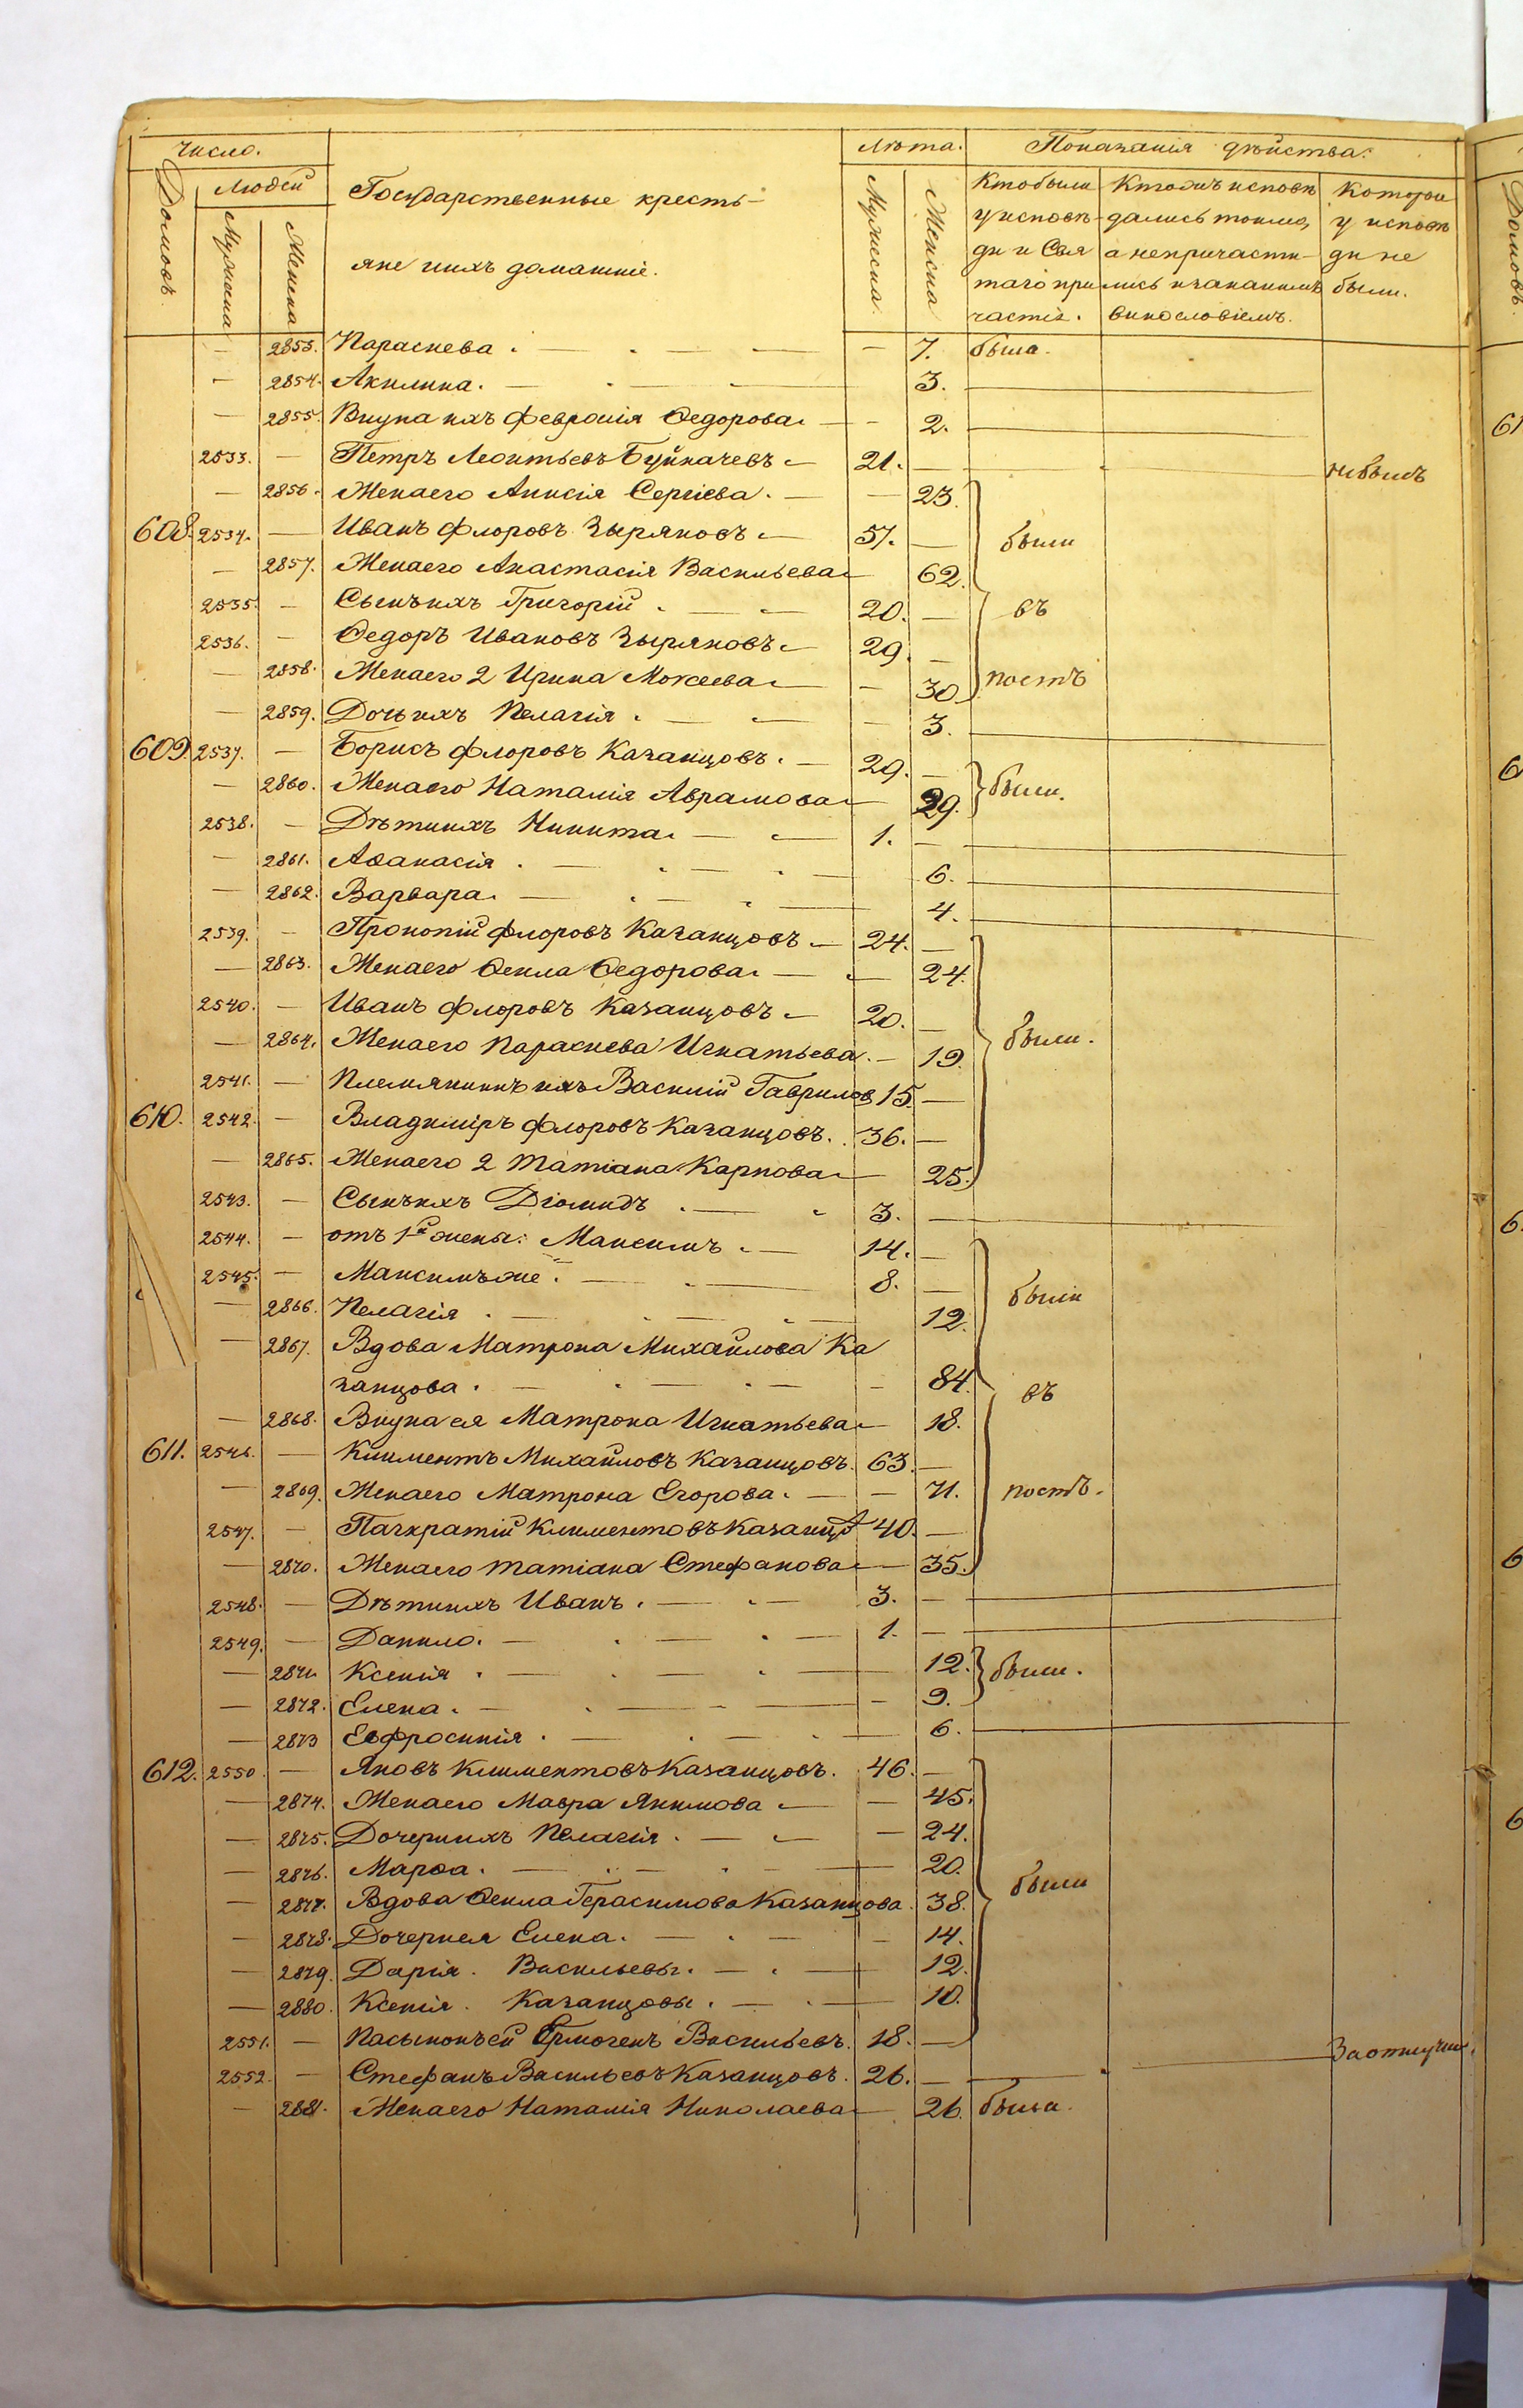 Число.
Лѣта.
Показанія дѣйства:
Домовъ.
Людей
Мужеска
Женска
Государственные кресть-
яне и ихъ домашніе.
Мужеска.
Женска
Кто были
у исповѣ-
ди и Свя
таго при
частія.
Кто жъ исповѣ
дались токмо,
а непричасти-
лись и за какимъ
винословіемъ.
Которые
у исповѣ
ди не
были.
— 2853. Параскева. — 7. была.
— 2854. Акилина. — 3.
— 2855. Внука ихъ Февронія Ѳедорова. — 2.
2533. — Петръ Леонтьевъ Буйначевъ — 21. — небылъ
— 2856. Жена его Анисія Сергіева. — 23.
608. 2534. — Иванъ Флоровъ Зыряновъ — 57. — были
— 2857. Жена его Анастасія Васильева — 62.
2535. — Сынъ ихъ Григорій. — 20. — въ
2536. — Ѳедоръ Ивановъ Зыряновъ — 29. —
— 2858. Жена его 2 Ирина Мокеева — 30. постъ
— 2859. Дочь ихъ Пелагія. — 3.
609. 2537. — Борисъ Флоровъ Казанцовъ. — 29. —
— 2860. Жена его Наталія Аврамова — 29. были.
2538. — Дѣти ихъ Никита. — 1. —
— 2861. Аѳанасія. — 6.
— 2862. Варвара. — 4.
2539. — Прокопій Флоровъ Казанцовъ — 24. —
— 2863. Жена его Ѳекла Ѳедорова. — 24.
2540. — Иванъ Флоровъ Казанцовъ — 20. —
— 2864. Жена его Параскева Игнатьева. — 19. были.
2541. — Племянникъ ихъ Василій Гаврилов 15. —
610. 2542. — Владиміръ Флоровъ Казанцовъ. 36. —
— 2865. Жена его 2 Татіана Карпова — 25.
2543. — Сынъ ихъ Діомидъ. — 3. —
2544. — отъ 1й жены: Максимъ. — 14. —
2545. — Максимъ же. — 8. — были
— 2866. Пелагія. — 12.
— 2867. Вдова Матрона Михайлова Ка
занцова. — 84. въ
— 2868. Внука ея Матрона Игнатьева — 18.
611. 2546. — Климентъ Михайловъ Казанцовъ. 63. —
— 2869. Жена его Матрона Егорова. — 71. постъ.
2547. — Панкратій Климентовъ Казанцо 40. —
— 2870. Жена его Татіана Стефанова — 35.
2548. — Дѣти ихъ Иванъ. — 3. —
2549. — Данило. — 1. —
— 2871. Ксенія. — 12. были.
— 2872. Елена. — 9.
— 2873 Евфросинія. — 6.
612. 2550. — Яковъ Климентовъ Казанцовъ. 46. —
— 2874. Жена его Мавра Якимова — 45.
— 2875. Дочери ихъ Пелагія. — 24.
— 2876. Марѳа. — 20.
— 2877. Вдова Ѳекла Герасимова Казанцова. 38. были
— 2878. Дочери ея Елена. — 14.
— 2879. Дарія. Васильевы. — 12.
— 2880. Ксенія. Казанцовы. — 10.
2551. — Пасынокъ ей Ермогенъ Васильевъ. 18. —
2552. — Стефанъ Васильевъ Казанцовъ. 26. — За отлучк.
— 2881. Жена его Наталія Николаева — 26. была.
Домовъ.
61
6
6.
6
6